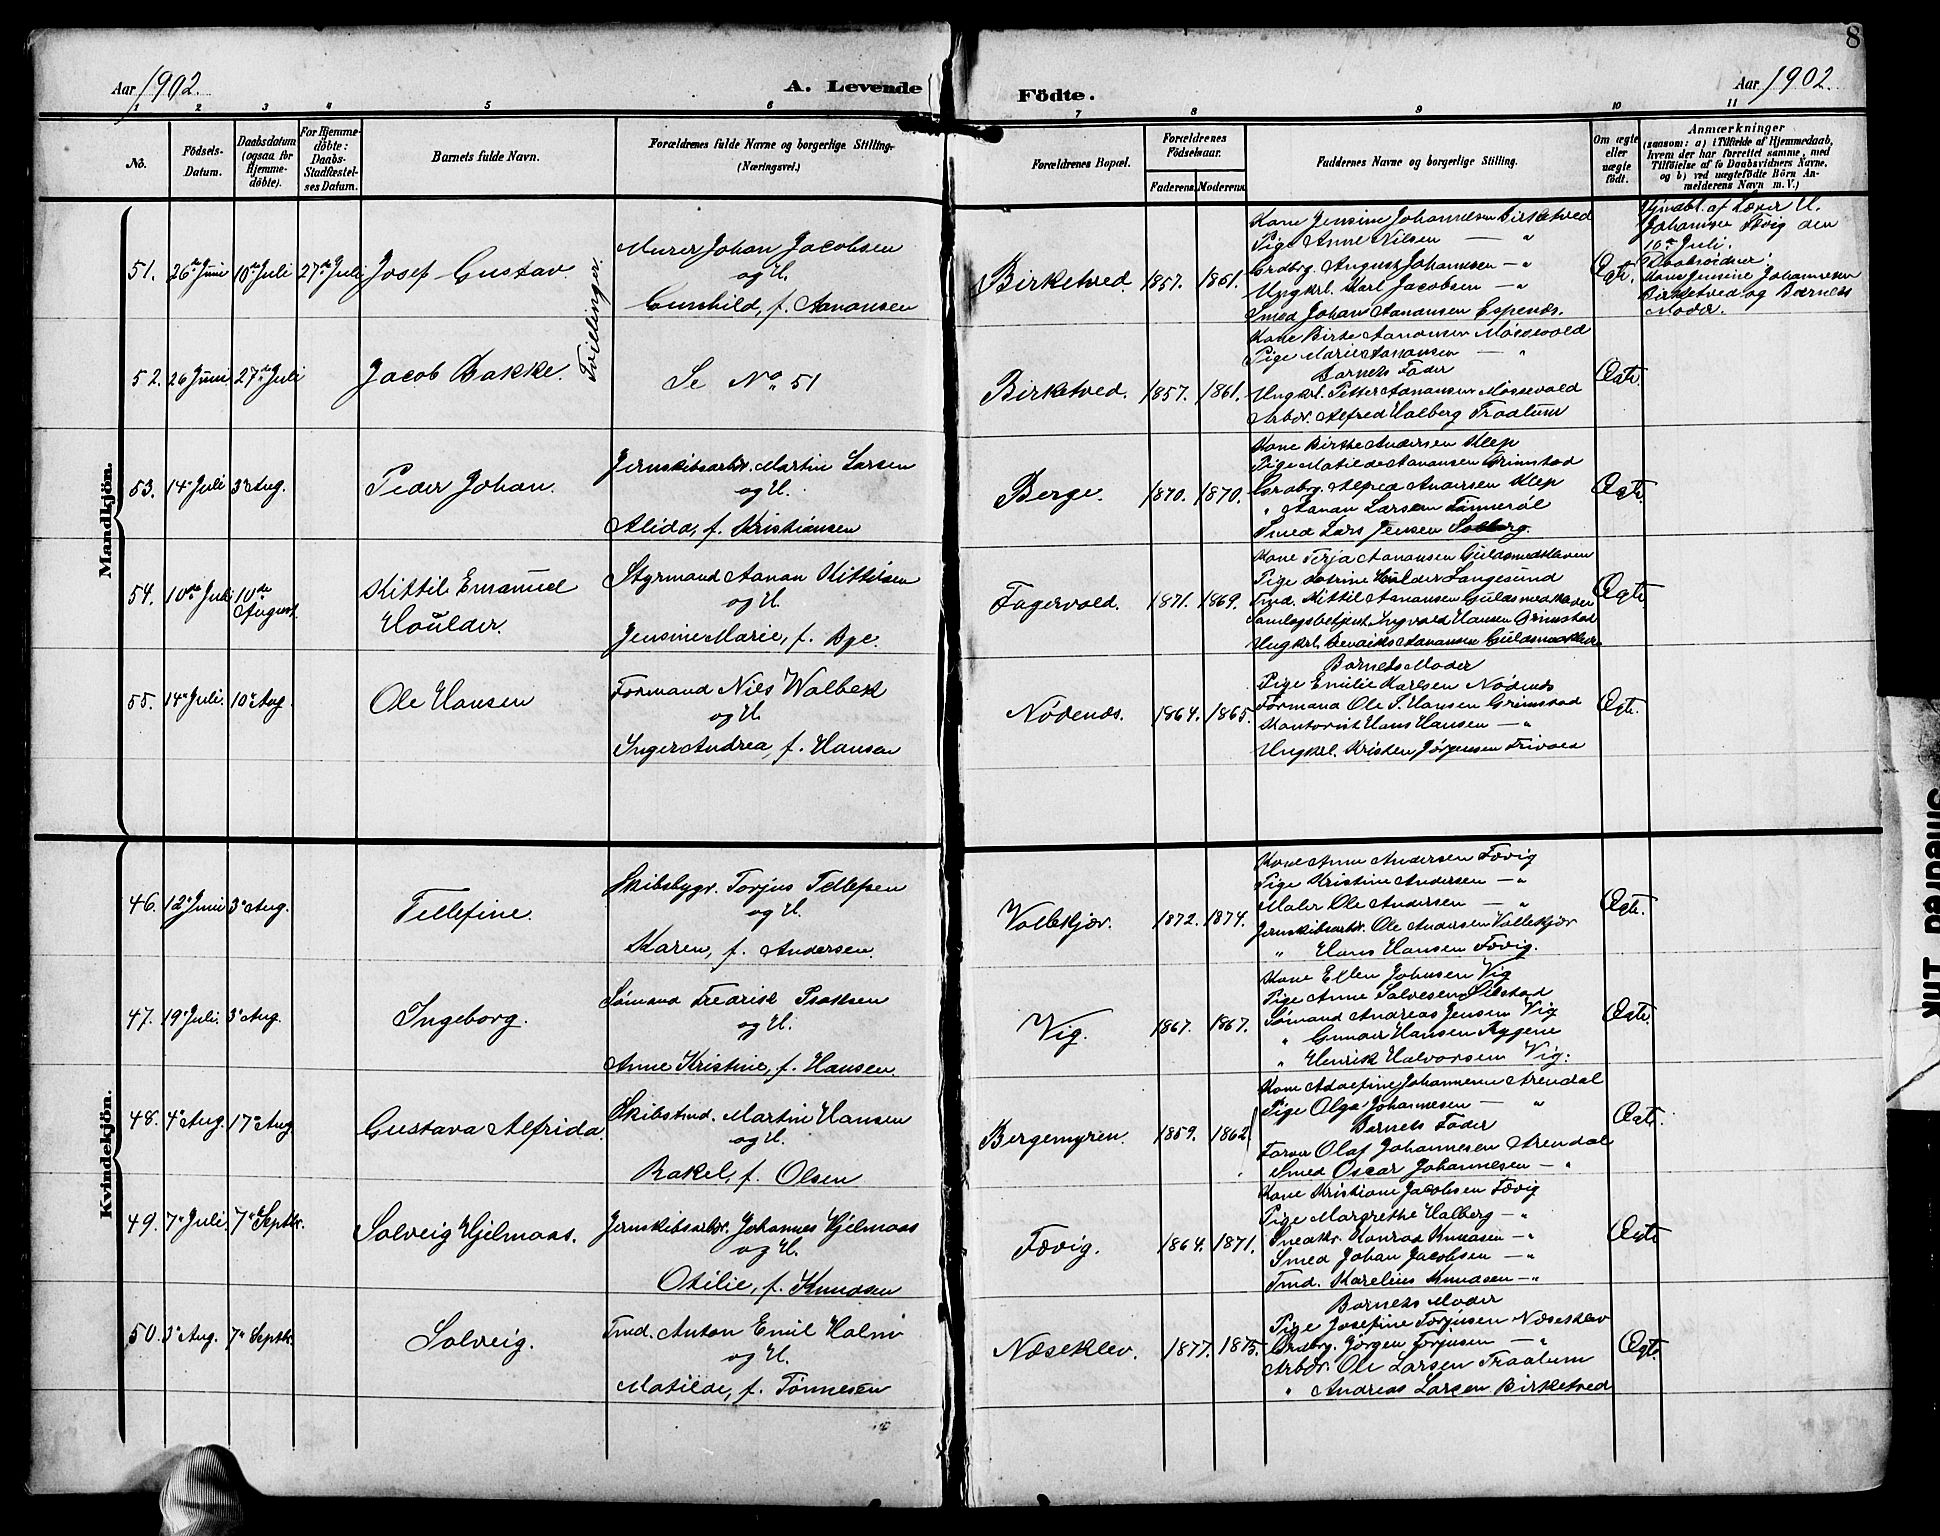 8
Aar 1902.
A. Levende
Födte.
Aar 1902.
1 2 3 4 5 6 7 8 9 10 11
No.
Födsels-
Datum.
Daabsdatum
(ogsaa for
Hjemme-
döbte).
For Hjemme-
döbte:
Daabs-
Stadfæstel-
ses Datum.
Barnets fulde Navn.
Forældrenes fulde Navne og borgerlige Stilling.
(Næringsvei.)
Forældrenes Bopæl.
Forældrenes
Födselsaar.
Faderens.
Moderens.
Faddernes Navne og borgerlige Stilling.
Om ægte
eller
uægte
født.
Anmærkninger
(saasom: a) i Tilfælde af Hjemmedaab,
hvem der har forrettet samme, med
Tilføielse af to Daabsvidners Navne,
og b) ved uægtefödte Börn An-
melderens Navn m. V.)
Mandkjön.
51. 26de Juni 10de Juli 27de Juli Josef Gustav
Tvillinger.
Murer Johan Jacobsen
og H.
Gunhild, f. Aanonsen
Birketved. 1857. 1861.
Kone Jensine Johannesen Birketved
Pige Anne Nilsen — "
Grdbrg. August Johannesen — "
Ungkrl. Karl Jacobsen — "
Smed Johan Aanonsen Espenæs.
Ægte.
Hjmdbt. af Lærer H.
Johansen Fævig den
10de Juli.
Daabsvidner:
Kone Jensine Johannesen
Birketved og Barnets
Moder.
52. 26 Juni 27de Juli Jacob Bakke.
Se No. 51
Birketved. 1857. 1861.
Kone Birte Aanonsen Mossevold
Pige Marie Aanonsen — "
Barnets Fader
Ungkrl. Petter Aanonsen Mossevold
Arbdr. Alfred Halberg Traalum
Ægte.
53. 14de Juli 3de Aug. Peder Johan.
Jernskibsarbdr. Martin Larsen
og H.
Alida, f. Kristiansen
Berge. 1870. 1870.
Kone Birthe Andersen Klep
Pige Matilde Aanonsen Grimstad
Grdbrg. Alfred Andersen Klep
" Aanon Larsen Tønnesøl
Smed Lars Jensen Solberg.
Ægte.
54. 10de Juli 10de August. Kittil Emanuel
Houlder.
Styrmand Aanon Kittilsen
og H.
Jensine Marie, f. Bye.
Fagervold. 1871. 1869.
Kone Terja Aanonsen Guldsmedhaven
Pige Katrine Hulder Langesund
Tmd. Kittil Aanonsen Guldsmedhaven
Samlagsbetjent Ingvald Hansen Grimstad
Ungkrl. Aanonsen
Ægte.
55. 14de Juli. 10de Aug. Ole Hansen
Formand Niels Walbek
og H.
Inger Andrea, f. Hansen
Nødenæs. 1864. 1865.
Barnets Moder
Pige Emilie Karlsen Nødenæs
Formand Ole S. Hansen Grimstad
Kontorist Hans Hansen — "
Ungkrl. Kristen Jørgensen Frivold
Ægte.
Kvindekjön.
46. 12te Juni 3de Aug. Tellefine.
Skibsbygr. Torjus Tellefsen
og H.
Karen, f. Andersen.
Vollekjær. 1872. 1874.
Kone Anne Andersen Fævig
Pige Kristine Andersen — "
Maler Ole Andersen — "
Jernskibsarbdr. Ole Andersen Vollekjær
" Hans Hansen Fævig.
Ægte.
47. 19de Juli. 3de Aug. Ingeborg.
Sømand Fredrik Isaksen
og H.
Anne Kristine, f. Hansen.
Vig. 1867. 1867.
Kone Ellen Johnsen Vig
Pige Anne Salvesen
Sømand Andreas Jensen Vig
" Gunder Hansen Rygene
" Henrik Halvorsen Vig.
Ægte.
48. 4de Aug. 17de Aug Gustava Alfrida.
Skibstmd. Martin Hansen
og H.
Rakel, f. Olsen
Bergemyren. 1859. 1862
Kone Adolfine Johannesen Arendal
Pige Olga Johannesen — "
Barnets Fader
Farver Olaf Johannesen Arendal
Smed Oscar Johannesen — "
Ægte.
49. 7de Juli. 7de Septbr. Solveig Hjelmaas.
Jernskibsarbdr. Johannes Hjelmaas
og H.
Otilie, f. Knudsen
Fævig. 1864. 1871.
Kone Kristiane Jacobsen Fævig
Pige Margrethe Halberg — "
Snedkr. Konrad Knudsen — "
Smed Johan Jacobsen — "
Tmd. Karelius Knudsen — "
Ægte
50. 3de Aug. 7de Septbr. Solveig.
Tmd. Anton Emil Holm
og H.
Matilde, f. Tønnesen
Næseklev. 1877. 1875.
Barnets Moder
Pige Josefine Torjusen Næseklev
Grdbrg. Jörgen Torjusen — "
Arbdr. Ole Larsen Traalum
" Andreas Larsen Birketved
Ægte.